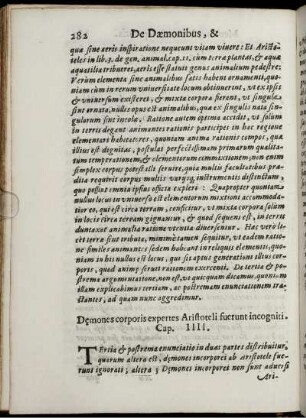 282 De Dæmonibus, &
quæ sine aeris inspiratione nequeunt vitam vivere: Et Aristo-
teles in lib. 3. de gen. animal. cap. 11. cum terra plantas, & aqua
aquatilia tribueret, aeris esse statuit genus animalium pedestre:
Verùm elementa sine animalibus satis habent ornamenti, quo-
niam cùm in rerum universitate locum obtineant, ut ex ipsis
& universum existeret, & mixta corpora fierent, vt singula
sine ornatu, nullis opus est animalibus, quæ ex singulis nata sin-
gulorum sint incolæ. Ratione autem optima accidit, vt solum
in terris degant animantes rationis participes in hac regione
elementari habitatores, quoniam anima rationis compos, vt
illius est dignitas, postulat perfectissimam primarum qualita-
tum temperationem, & elementorum commixtionem, non enim
simplex corpus potest illi servire, quia multis facultatibus præ-
dita requirit corpus multis varijsq; instrumentis distinctum,
quo possint omnia ipsius officia expleri: Quapropter quoniam
nullus locus in universo est elementorum mixtioni accommoda-
tior eo, qui est circa terram, consicitur, vt mixta corpora solum
in locis circa terram gignantur, & quod sequens est, in terris
duntaxat animalia ratione vtentia diversentur. Hac verò li-
cèt terræ sint tributa, minimè tamen sequitur, vt eadem ratio-
ne similes animantes sedem habeant in reliquis elementis, quo-
niam in his nullus est locus, qui sit aptus generationis illius cor-
poris, quod animæ formam rationis exerceret. De tertia & po-
strema argumentatione, non est, ut quicquam dicamus, quoni-
illam explicabimus tertiam, ac postremam enuntiationem tra-
ctantes, ad quam nunc aggredimur.
Dęmones corporis expertes Aristoteli fuerunt incogniti.
Cap. IIII.
TErtia & postrema enunciatio in duas partes distribuitur,
quarum altera est, dęmones incorporei ab Aristotele fue-
runt ignorati; altera; Dęmones incorporei non sunt adversi
Ari-